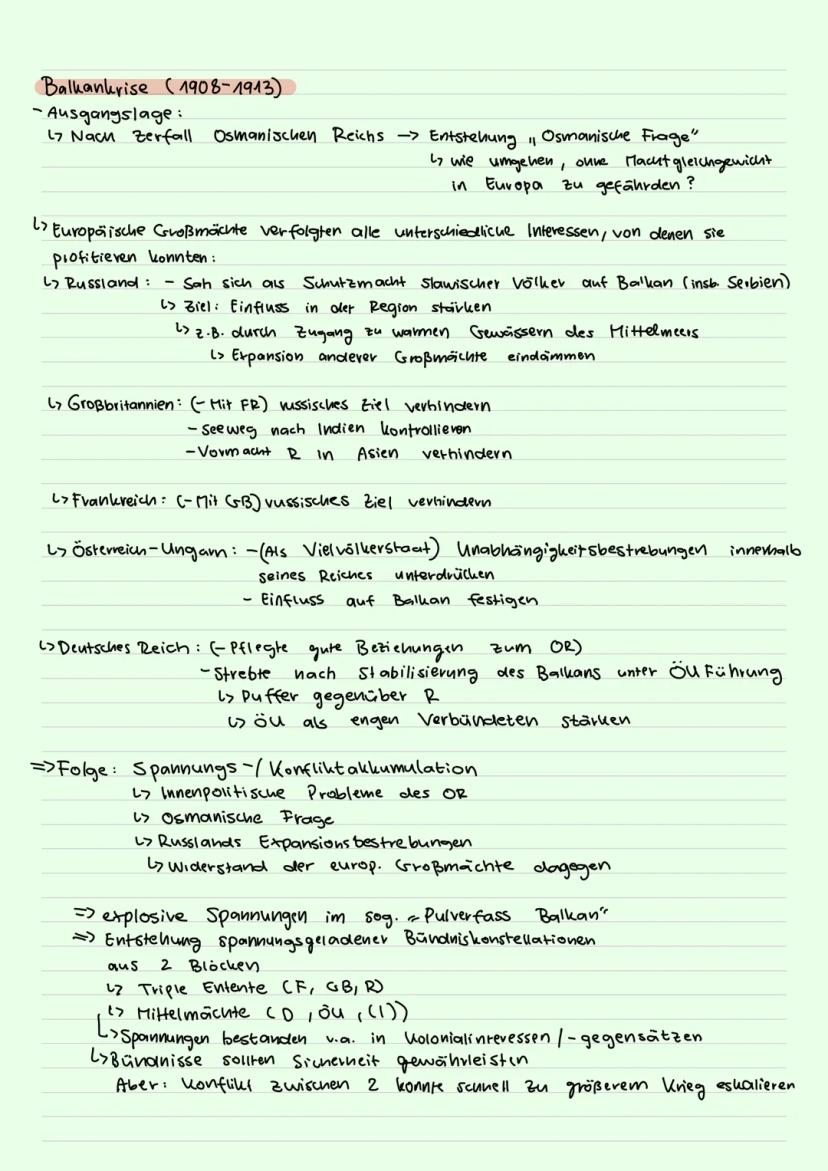 Balkankrise (1908-1913)
- Ausgangslage:
↳ Nach Zerfall Osmanischen Reichs → Entstehung „Osmanische Frage"
↳ wie umgehen, ohne Machtgleichgewicht
in Europa zu gefährden?
↳ Europäische Großmächte verfolgten alle unterschiedliche Interessen, von denen sie
profitieren konnten:
↳ Russland: - Sah sich als Schutzmacht slawischer Völker auf Balkan (insb. Serbien)
↳ Ziel: Einfluss in der Region stärken
↳ z.B. durch Zugang zu warmen Gewässern des Mittelmeers
↳ Expansion anderer Großmächte eindämmen
↳ Großbritannien: (- Mit FR) russisches Ziel verhindern
- Seeweg nach Indien kontrollieren
- Vormacht R in Asien verhindern
↳ Frankreich: (- Mit GB) russisches Ziel verhindern
↳ Österreich-Ungarn: - (Als Vielvölkerstaat) Unabhängigkeitsbestrebungen innerhalb
seines Reiches unterdrücken
- Einfluss auf Balkan festigen
↳ Deutsches Reich: (- Pflegte gute Beziehungen zum OR)
- Strebte nach Stabilisierung des Balkans unter ÖU Führung
↳ Puffer gegenüber R
↳ ÖU als engen Verbündeten stärken
⇒ Folge: Spannungs-/Konfliktakkumulation
↳ Innenpolitische Probleme des OR
↳ Osmanische Frage
↳ Russlands Expansionsbestrebungen
↳ Widerstand der europ. Großmächte dagegen
⇒ explosive Spannungen im sog. „Pulverfass Balkan"
⇒ Entstehung spannungsgeladener Bündniskonstellationen
aus 2 Blöcken
↳ Triple Entente (F, GB, R)
↳ Mittelmächte (D, ÖU, (I))
↳ Spannungen bestanden v.a. in Kolonialinteressen/-gegensätzen
↳ Bündnisse sollten Sicherheit gewährleisten
Aber: Konflikt zwischen 2 konnte schnell zu größerem Krieg eskalieren